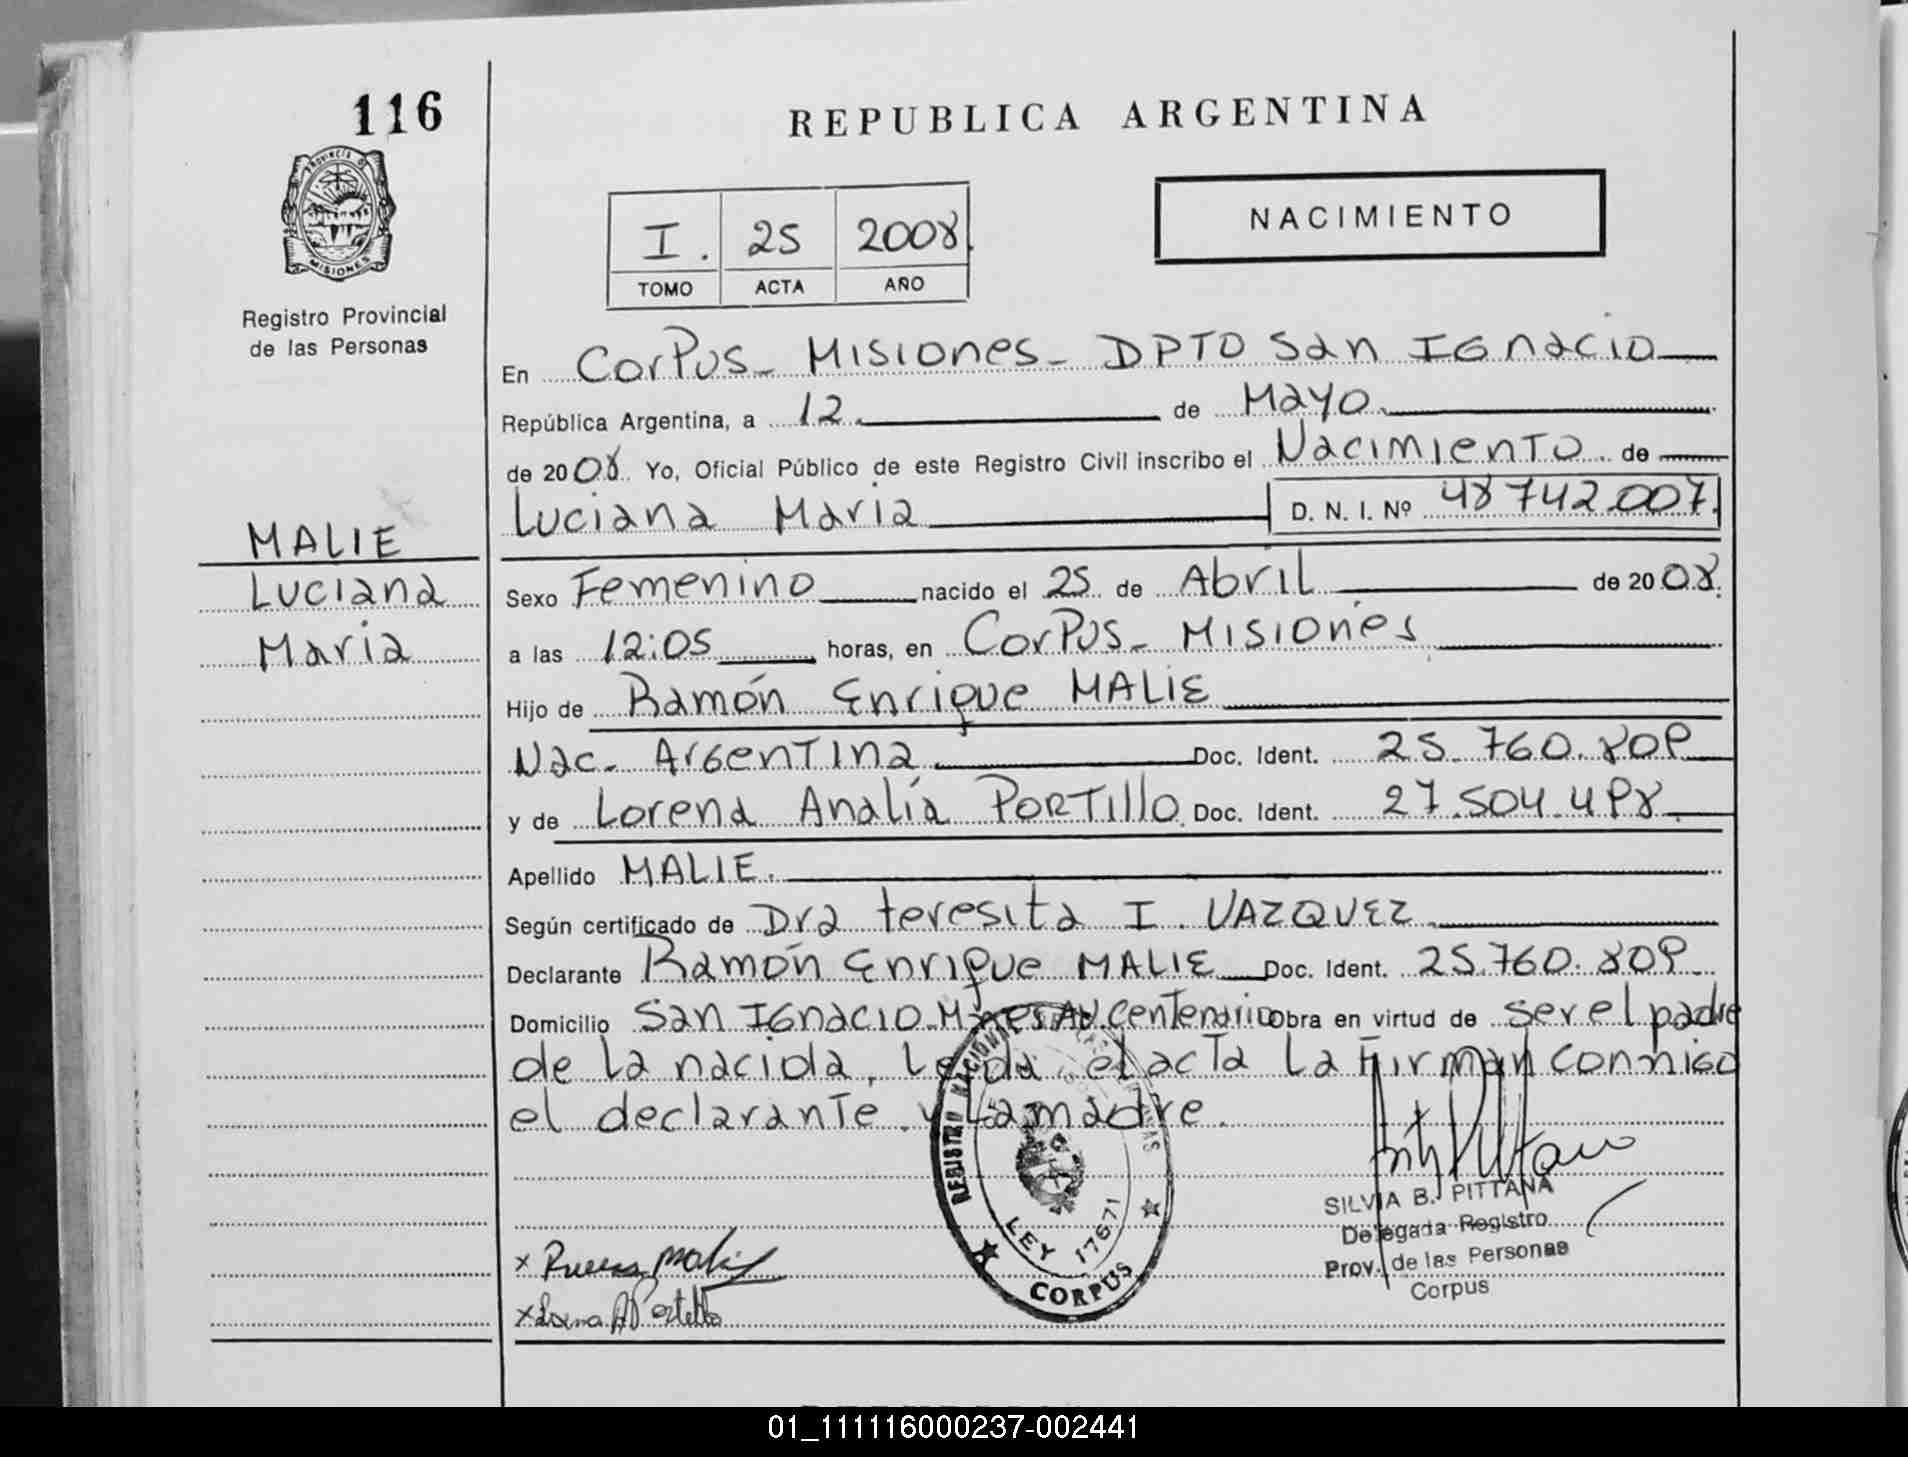 116
REPUBLICA ARGENTINA
PROVINCIA DE
MISIONES
Registro Provincial
de las Personas
I. 25 2008
TOMO ACTA AÑO
NACIMIENTO
En Corpus - Misiones - DPTO San Ignacio
República Argentina, a 12. de Mayo.
de 2008. Yo, Oficial Público de este Registro Civil inscribo el Nacimiento de
Luciana Maria D. N. I. Nº 48742007.
MALIE
Luciana
Maria
Sexo Femenino nacido el 25 de Abril de 2008.
a las 12:05 horas, en Corpus - Misiones
Hijo de Ramón Enrique MALIE
Nac. Argentina Doc. Ident. 25.760.809
y de Lorena Analía PORTILLO Doc. Ident. 27.504.498
Apellido MALIE.
Según certificado de Dra teresita I. VAZQUEZ
Declarante Ramón Enrique MALIE Doc. Ident. 25.760.809
Domicilio San Ignacio Mnes Av. Centenario Obra en virtud de ser el padre
de la nacida. Leida el acta La Firman conmigo
el declarante y La madre.
REGISTRO NACIONAL DE LAS PERSONAS
LEY 17671
CORPUS
SILVIA B. PITTANA
Delegada Registro
Prov. de las Personas
Corpus
x
x Lorena A Portillo
01_111116000237-002441